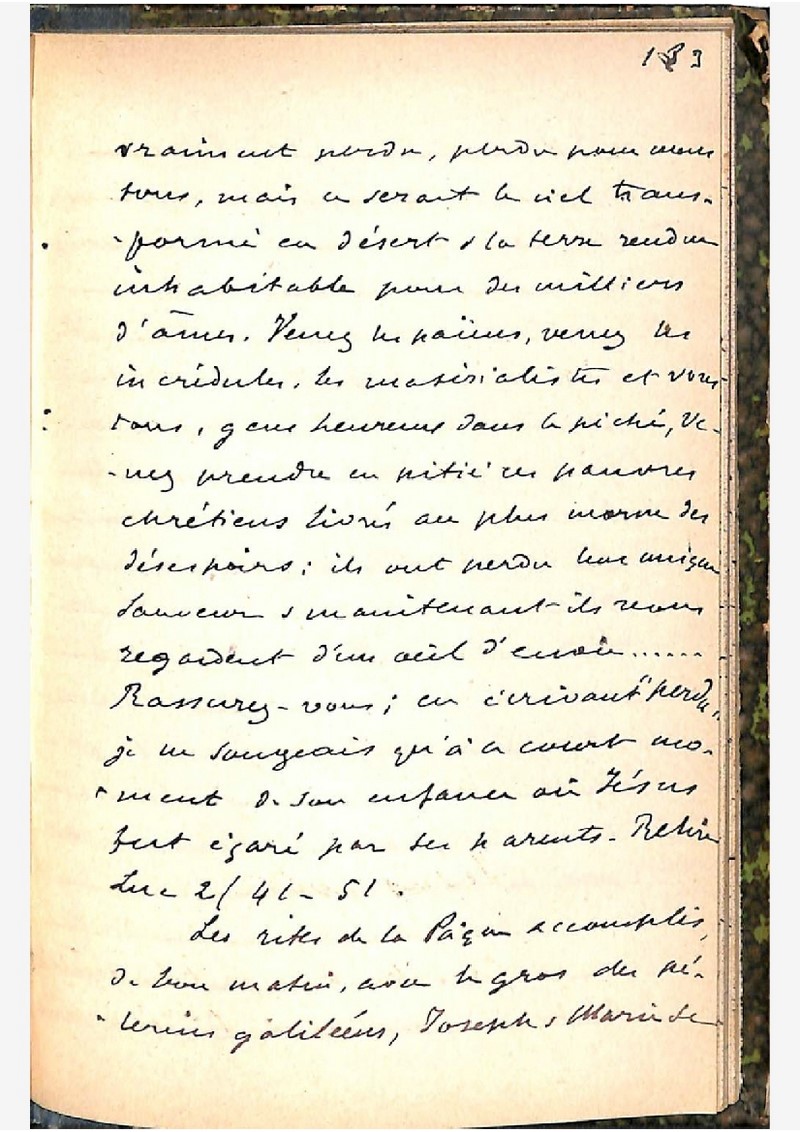 183
vraiment perdu, perdu pour nous
tous, mais ce serait le ciel trans-
-formé en désert & la terre rendue
inhabitable pour des milliers
d'âmes. Venez les païens, venez les
incrédules, les matérialistes et vous
tous, gens heureux dans le péché, ve-
-nez prendre en pitié ces pauvres
chrétiens livrés au plus morne des
désespoirs ; ils ont perdu leur unique
Sauveur & maintenant ils vous
regardent d'un œil d'envie......
Rassurez-vous ; en écrivant "perdu",
je ne songeais qu'à ce court mo-
-ment de son enfance où Jésus
fut égaré par ses parents. Relire
Luc 2/ 41-51.
Les rites de la Pâque accomplis,
de bon matin, avec le gros des pè-
-lerins galiléens, Joseph & Marie se